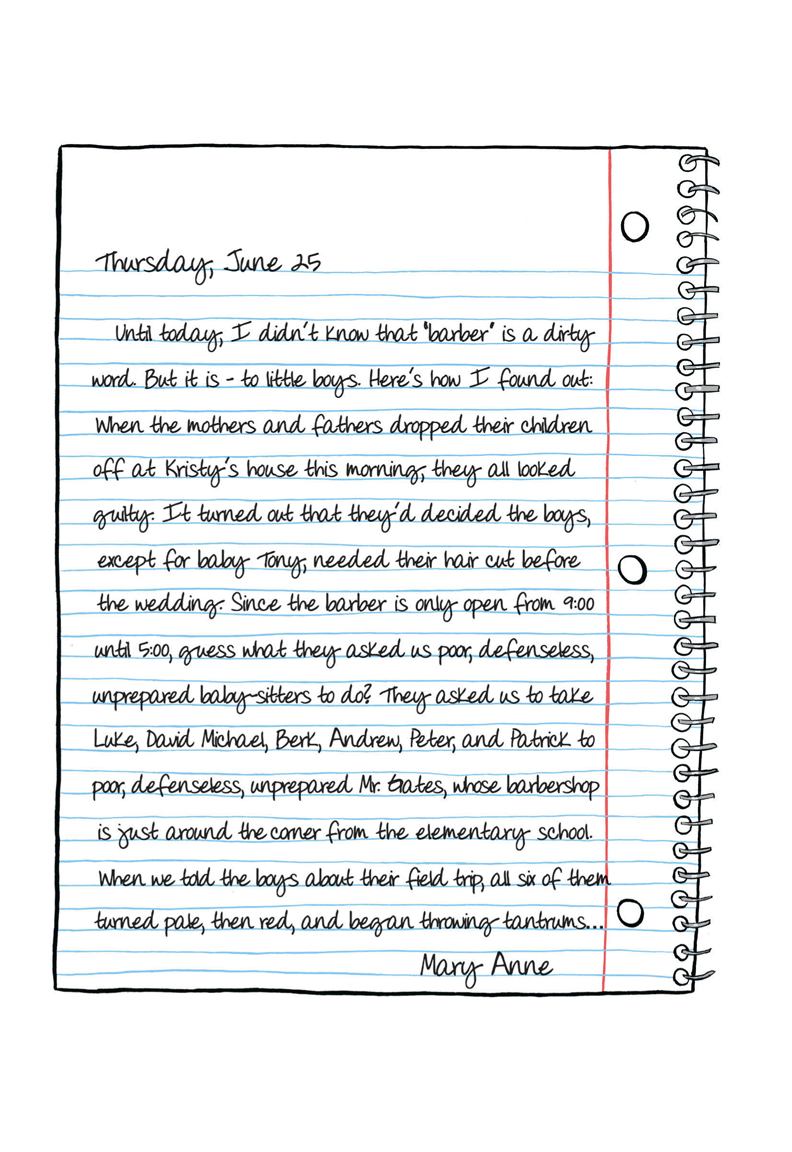 Thursday, June 25
Until today, I didn't know that "barber" is a dirty
word. But it is - to little boys. Here's how I found out:
When the mothers and fathers dropped their children
off at Kristy's house this morning, they all looked
guilty. It turned out that they'd decided the boys,
except for baby Tony, needed their hair cut before
the wedding. Since the barber is only open from 9:00
until 5:00, guess what they asked us poor, defenseless,
unprepared baby-sitters to do? They asked us to take
Luke, David Michael, Berk, Andrew, Peter, and Patrick to
poor, defenseless, unprepared Mr. Gates, whose barbershop
is just around the corner from the elementary school.
When we told the boys about their field trip, all six of them
turned pale, then red, and began throwing tantrums...
Mary Anne